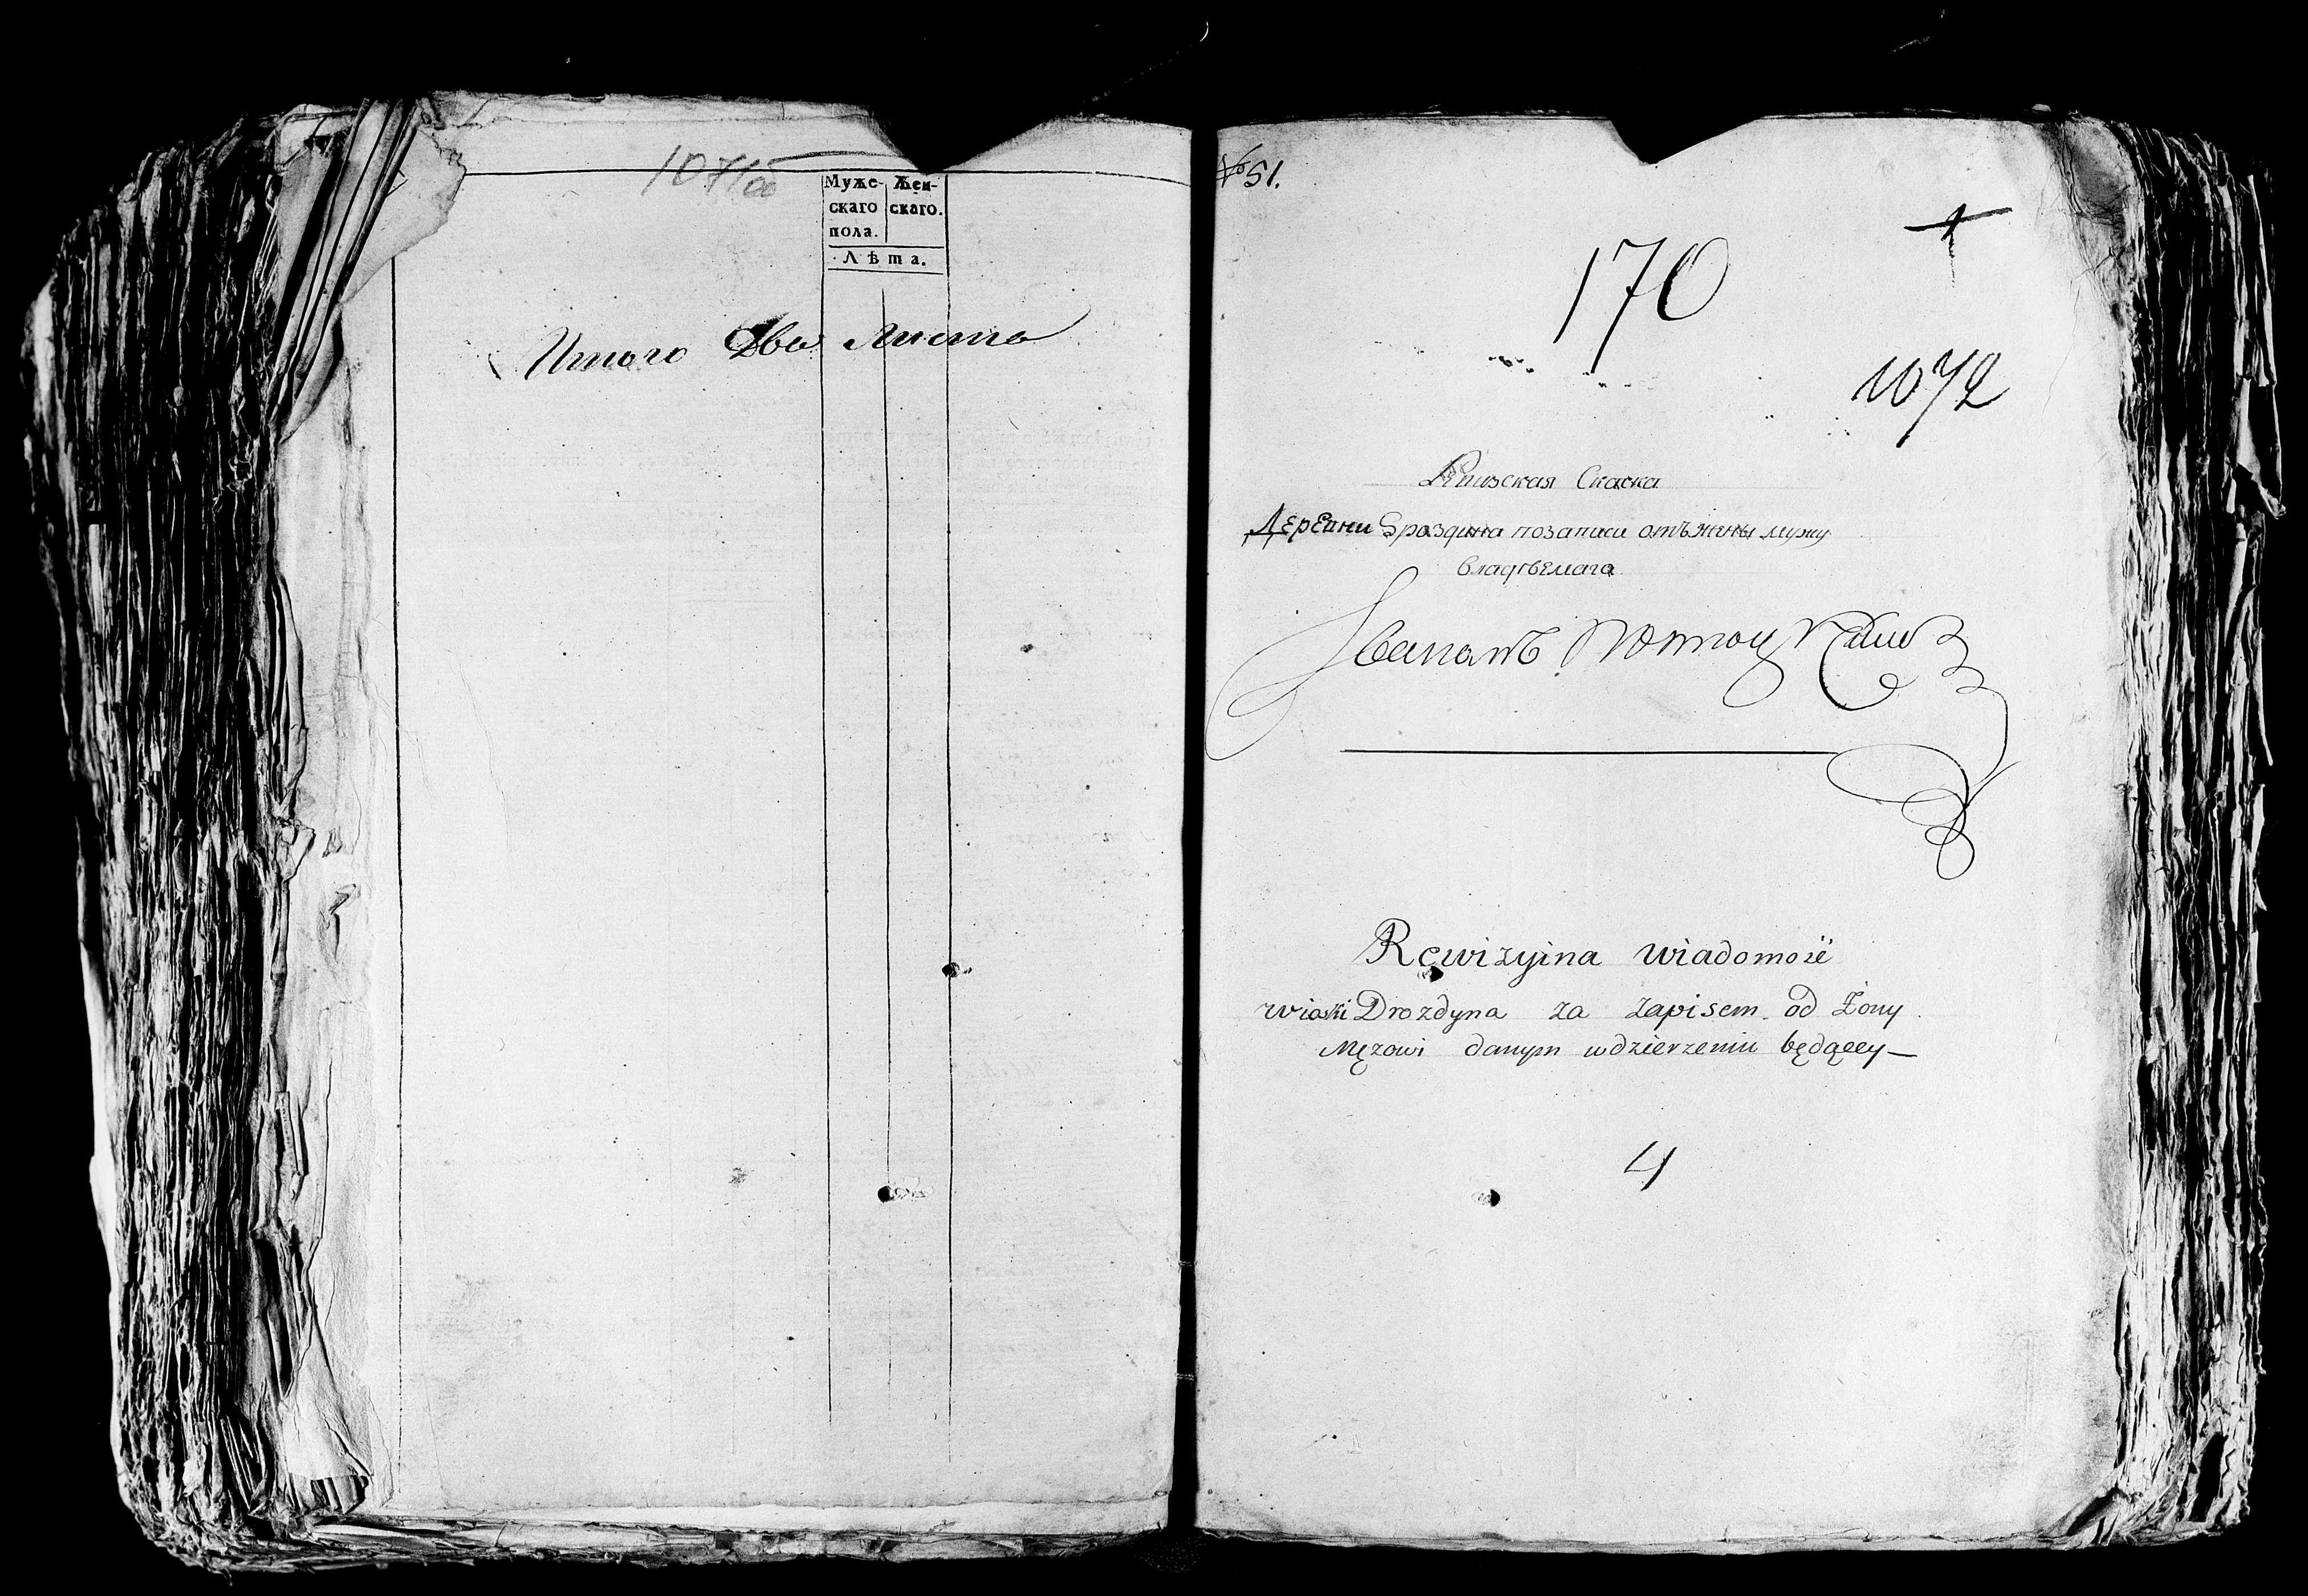 1071об
Муже- Жен-
скаго скаго.
пола.
Лѣта.
Итого Два листа
№51.
170
1072
Ревизская Скаска
Деревни Дроздина позаписи отъ жены мужу
владѣемаго
Иваномъ
Rewizyina wiadomość
wioski Drozdyna za zapisem od Żony
Mężowi danym w dzierżeniu będącey—
4